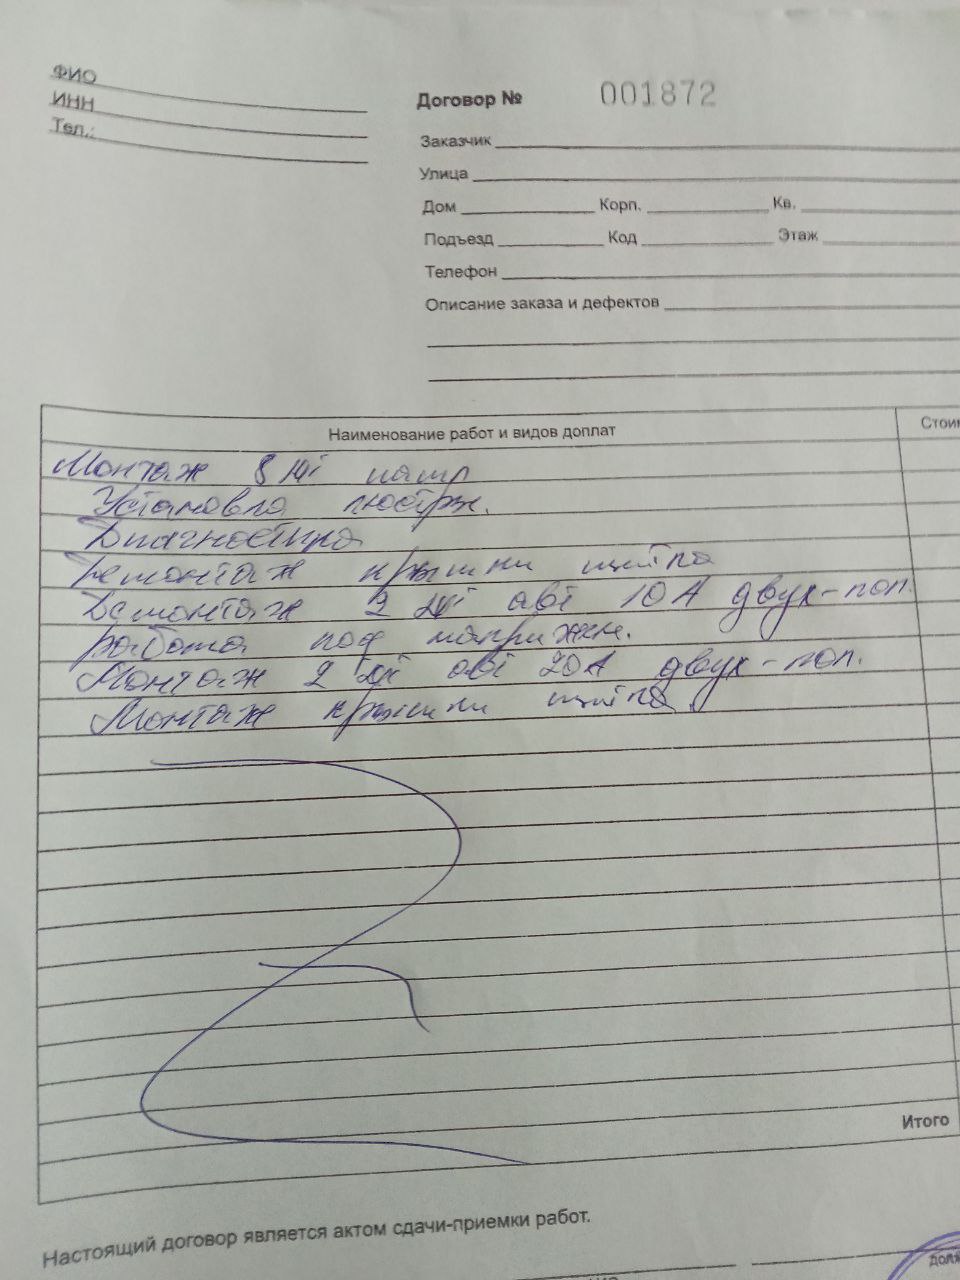 ФИО
ИНН
Тел.:
Договор № 001872
Заказчик
Улица
Дом Корп. Кв.
Подъезд Код Этаж
Телефон
Описание заказа и дефектов
Наименование работ и видов доплат Стоим
Монтаж 8 шт патр
Установка люстры.
Диагностика
Демонтаж крышки щитка
Демонтаж 2 шт авт 10А двух-пол.
работа под напряжен.
Монтаж 2 шт авт 20А двух-пол.
Монтаж крышки щитка.
Итого
Настоящий договор является актом сдачи-приемки работ.